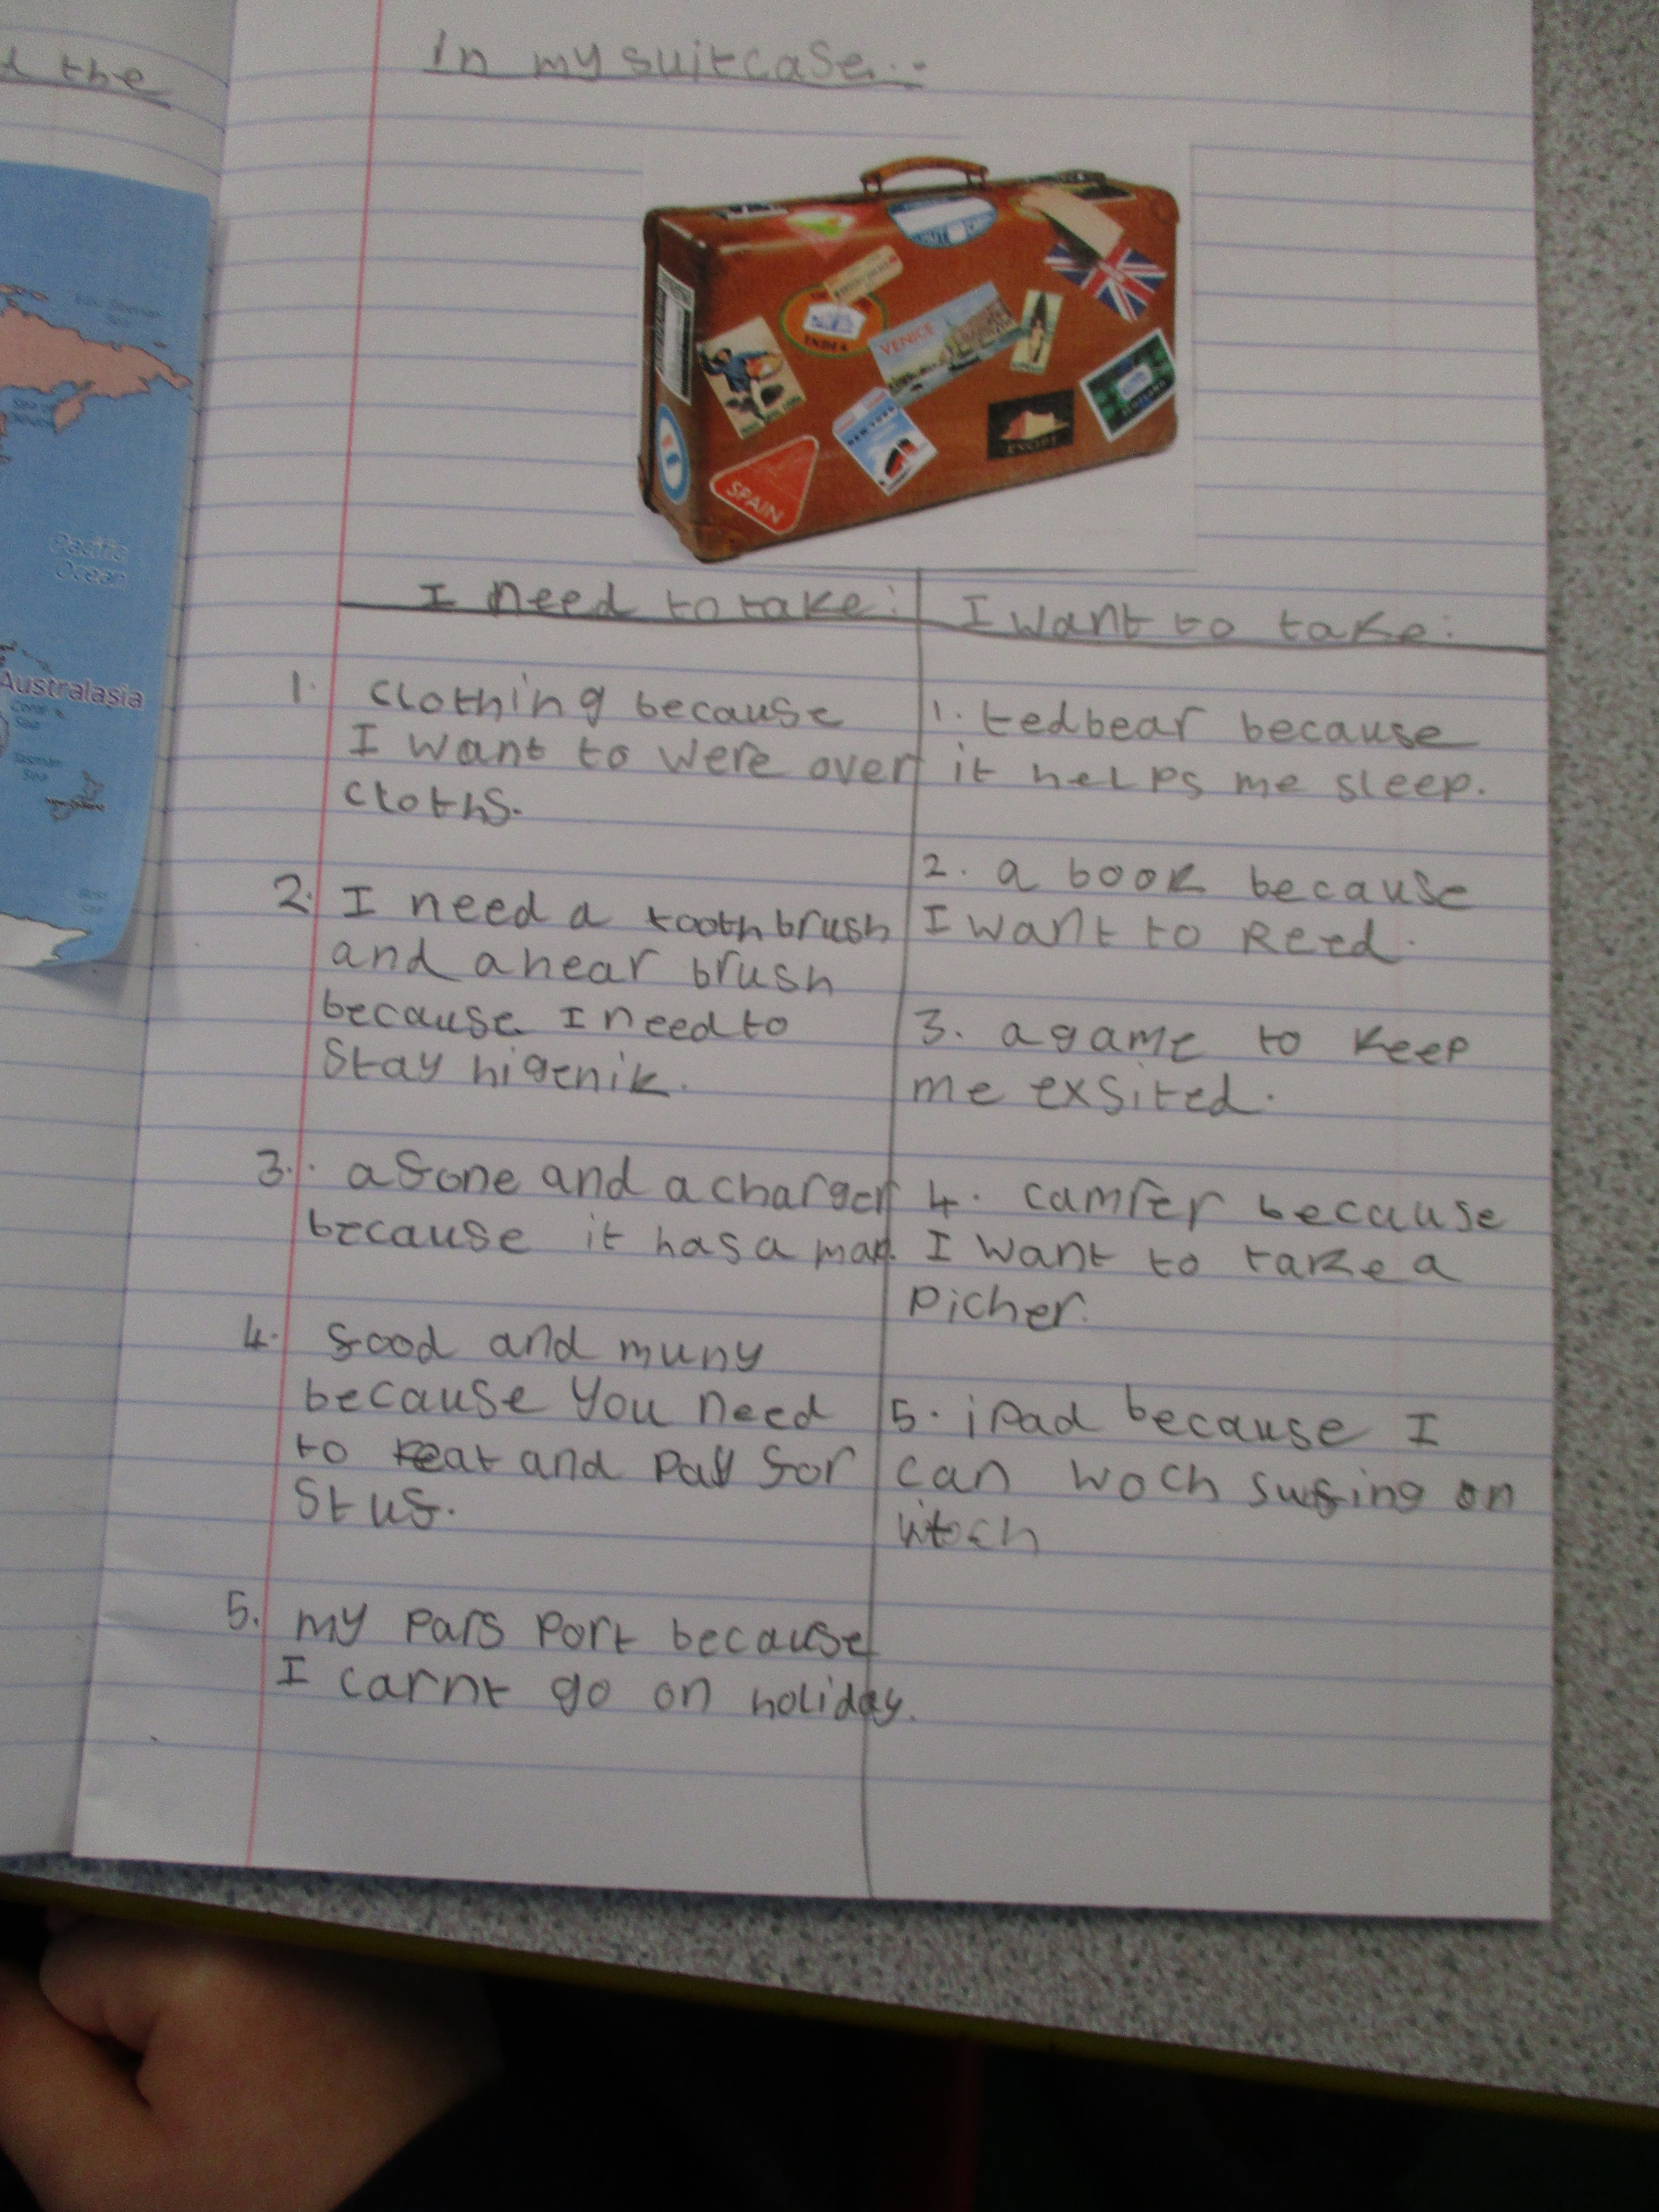 d the
In my suitcase...
VENICE
NEW YORK
SPAIN
EGYPT
Pacific
Ocean
Australasia
Coral
Sea
Tasman
Sea
I need to take:
1. Clothing because
I want to were over
cloths.
2. I need a toothbrush
and a hear brush
because I need to
Stay higenik.
3. a fone and a charger
because it has a map.
4. food and muny
because you need
to eat and pay for
Stuf.
5. my pars port because
I carnt go on holiday.
I want to take:
1. tedbear because
it helps me sleep.
2. a book because
I want to Reed.
3. a game to keep
me exsited.
4. camrer because
I want to take a
picher.
5. ipad because I
can woch surfing on